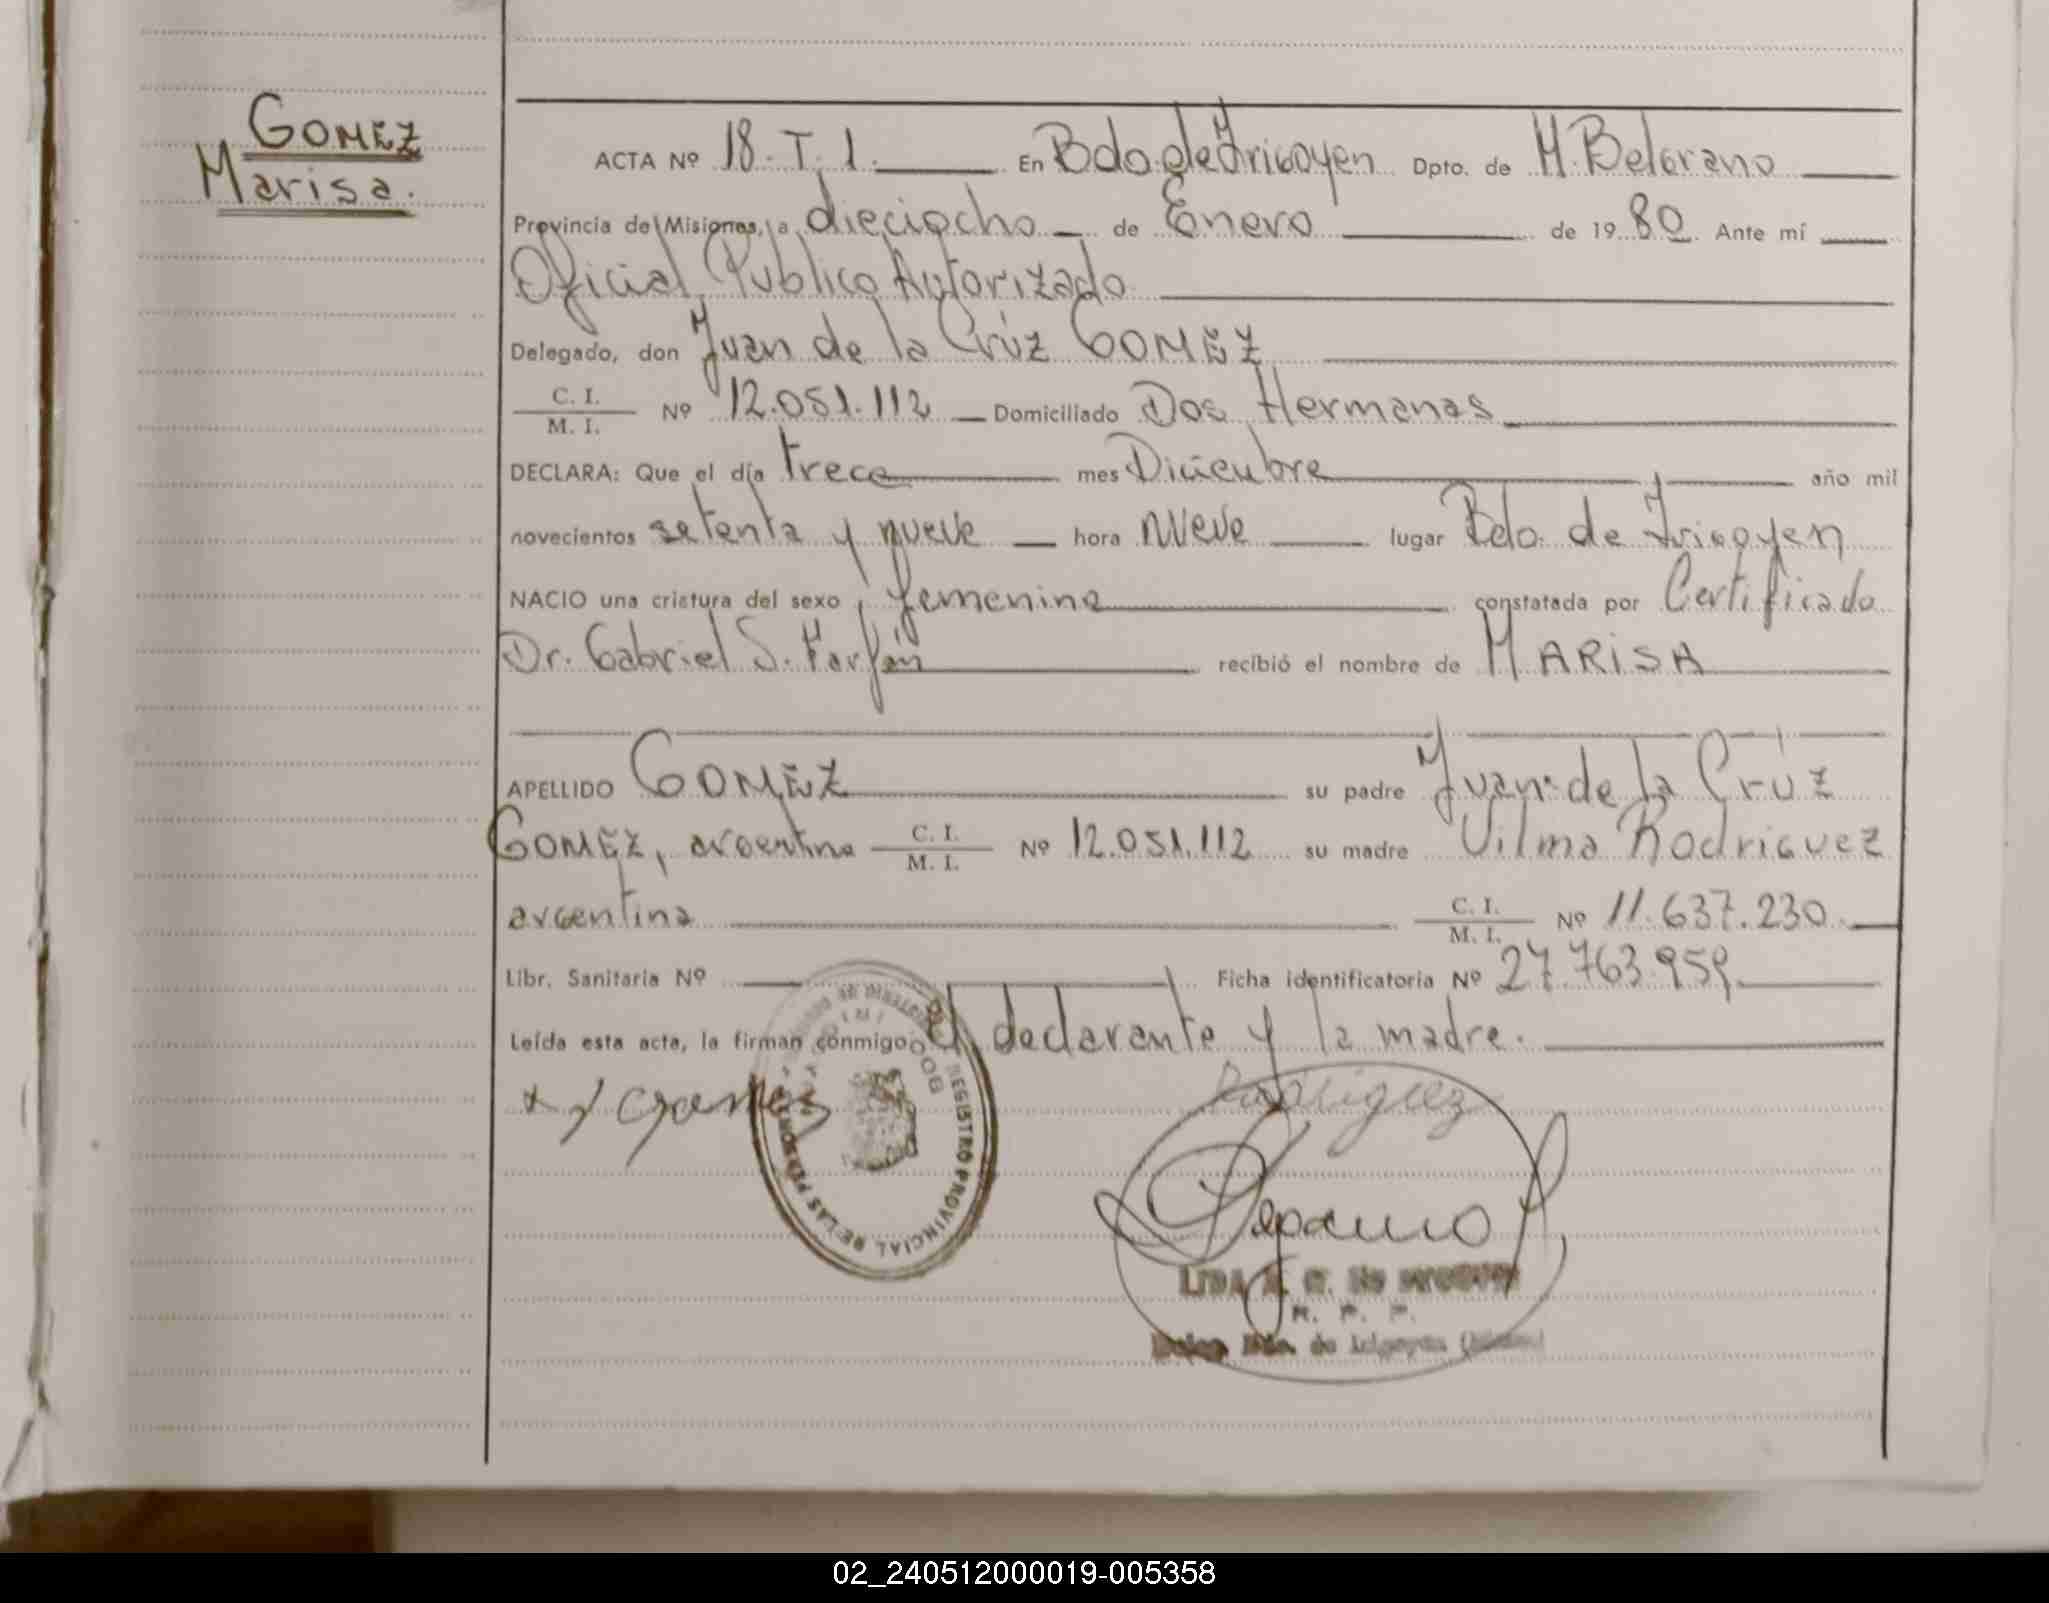 GOMEZ
Marisa.
ACTA Nº 18. T. 1. En Bdo. de Irigoyen Dpto. de M. Belgrano
Provincia de Misiones, a dieciocho de Enero de 1980 Ante mí
Oficial Publico Autorizado
Delegado, don Juan de la Crúz GOMEZ
C. I.
M. I. Nº 12.051.112 Domiciliado Dos Hermanas
DECLARA: Que el día trece mes Diciembre año mil
novecientos setenta y nueve hora nueve lugar Bdo. de Irigoyen
NACIO una criatura del sexo femenino constatada por Certificado
Dr. Gabriel S. Farfán recibió el nombre de MARISA
APELLIDO GOMEZ su padre Juan de la Crúz
GOMEZ, argentino C. I. M. I. Nº 12.051.112 su madre Vilma Rodriguez
argentina C. I. M. I. Nº 11.637.230
Libr. Sanitaria Nº Ficha identificatoria Nº 27.763.959
Leída esta acta, la firman conmigo el declarante y la madre.
Rodriguez
REGISTRO PROVINCIAL DE LAS PERSONAS
R. P. P.
Deleg. Bdo. de Irigoyen (Misiones)
02_240512000019-005358